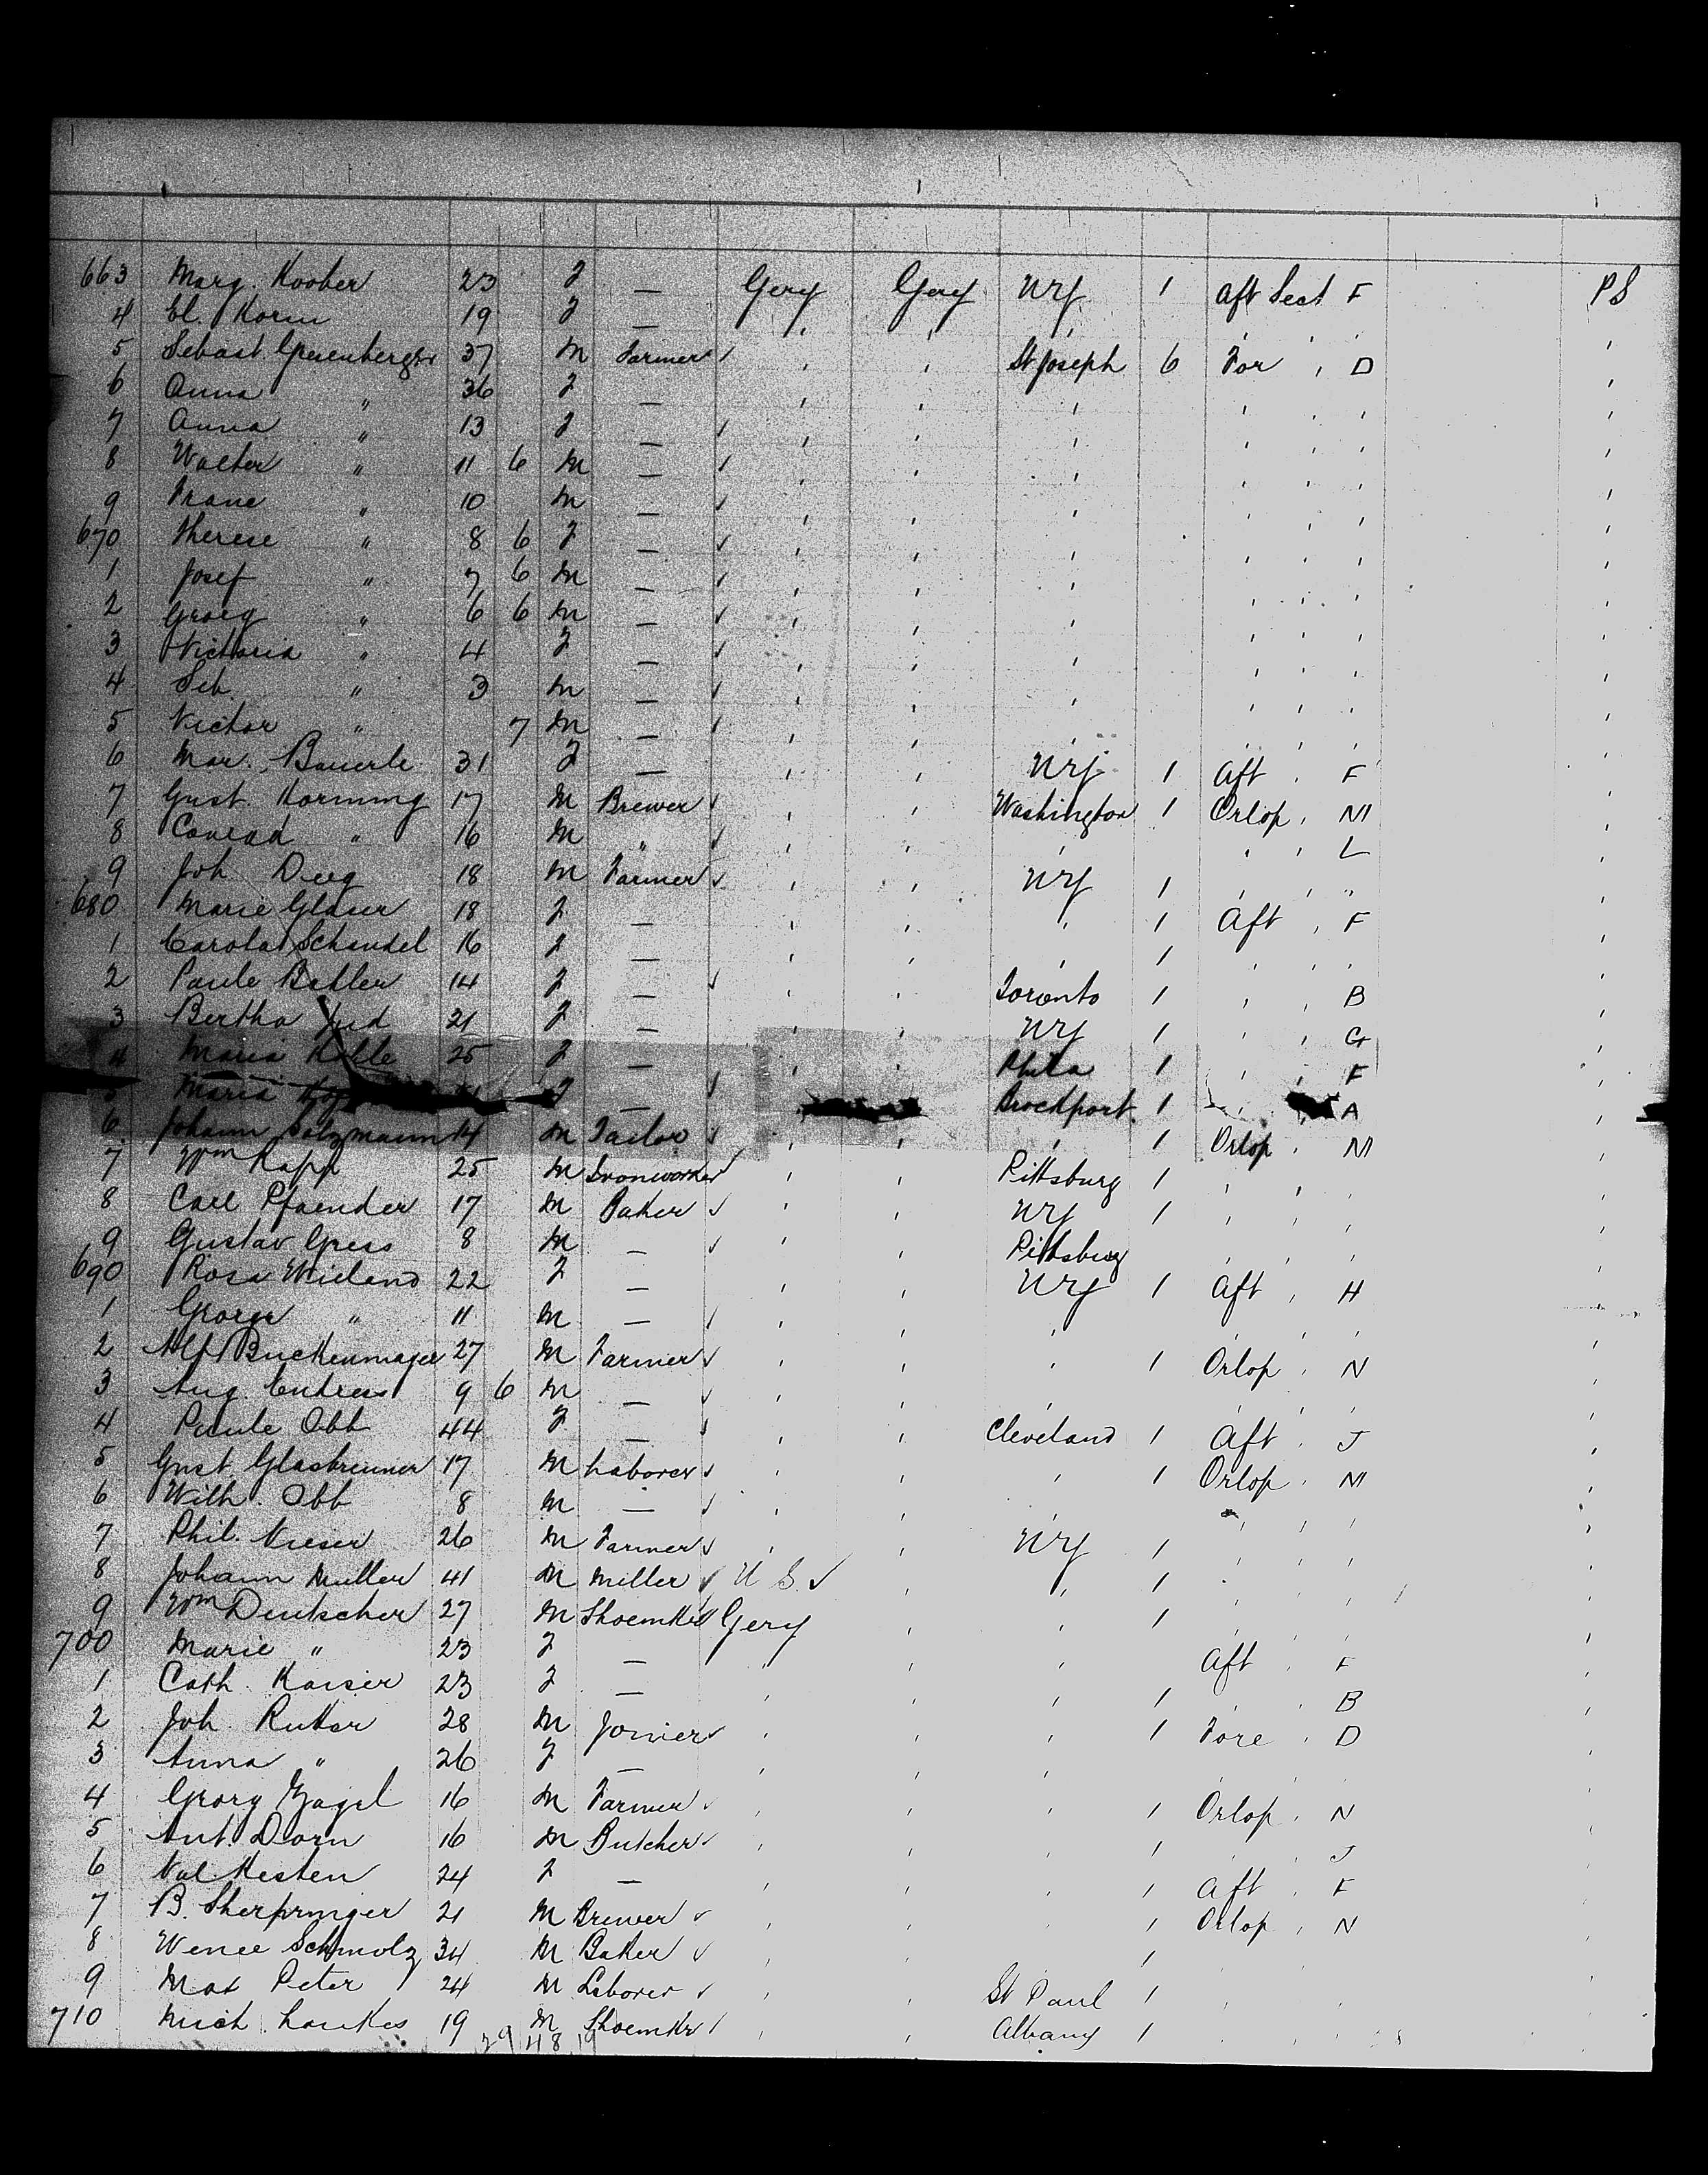 663 Marg. Koober 23 F — Gery Gery NY 1 Aft Sect F PS
4 El. Korn 19 F — " " " " "
5 Sebast. Griesenberger 37 M Farmer " " St Joseph 6 For " D "
6 Anna " 36 F — " " " " " " "
7 Anna " 13 F — " " " " " " "
8 Walter " 11 6 M — " " " " " " "
9 Franc " 10 M — " " " " " " "
670 Therese " 8 6 F — " " " " " " "
1 Josef " 7 6 M — " " " " " " "
2 Georg " 6 6 M — " " " " " " "
3 Victoria " 4 F — " " " " " " "
4 Seb. " 3 M — " " " " " " "
5 Victor " 7 M — " " " " " " "
6 Mar. Bauerle 31 F — " " NY 1 Aft " F "
7 Gust. Horning 17 M Brewer " " Washington 1 Orlop " M "
8 Conrad " 16 M " " " " " " L "
9 Joh. Deeg 18 M Farmer " " NY 1 " " " "
680 Marie Glaser 18 F — " " " 1 Aft " F "
1 Carola Schandel 16 F — " " " 1 " " " "
2 Paule Bahler 14 F — " " Toronto 1 " " B "
3 Bertha Jud 21 F — " " NY 1 " " G "
4 Maria 25 F — " " Phila 1 " " F "
5 Maria F — " Brockport 1 " A "
6 Johann Salzmann 14 M Tailor " " " 1 Orlop " M "
7 Wm Rapp 25 M Ironworker " " Pittsburg 1 " " " "
8 Carl Pfaender 17 M Baker " " NY 1 " " " "
9 Gustav Gress 8 M — " " Pittsburg " " " "
690 Rosa Wieland 22 F — " " NY 1 Aft " H "
1 George " 11 M — " " " " " " "
2 Alf Buckenmajer 27 M Farmer " " " 1 Orlop " N "
3 Aug. Endress 9 6 M — " " " " " " "
4 Paule Obb 44 F — " " Cleveland 1 Aft " J "
5 Gust. Glasbrenner 17 M Laborer " " " 1 Orlop " M "
6 Wilh. Obb 8 M — " " " " " " "
7 Phil. Nieser 26 M Farmer " " NY 1 " " " "
8 Johann Muller 41 M Miller U S. " " 1 " " " "
9 Wm Deutscher 27 M Shoemkr Gery " " 1 " " " "
700 Marie " 23 F — " " " Aft " F "
1 Cath. Kaiser 23 F — " " " 1 " " B "
2 Joh. Rutter 28 M Joiner " " " 1 Fore " D "
3 Anna " 26 F — " " " " " " "
4 Georg Gagel 16 M Farmer " " " 1 Orlop " N "
5 Ant. Dorn 16 M Butcher " " " 1 " " J "
6 Val. Kesten 24 F — " " " 1 Aft " F "
7 B. Sherpringer 21 M Brewer " " " 1 Orlop " N "
8 Wence Schmolz 34 M Baker " " " 1 " " " "
9 Max Peter 24 M Laborer " " St Paul 1 " " " "
710 Mich. Laukes 19 M Shoemkr " " Albany 1 " " " "
29 48 19